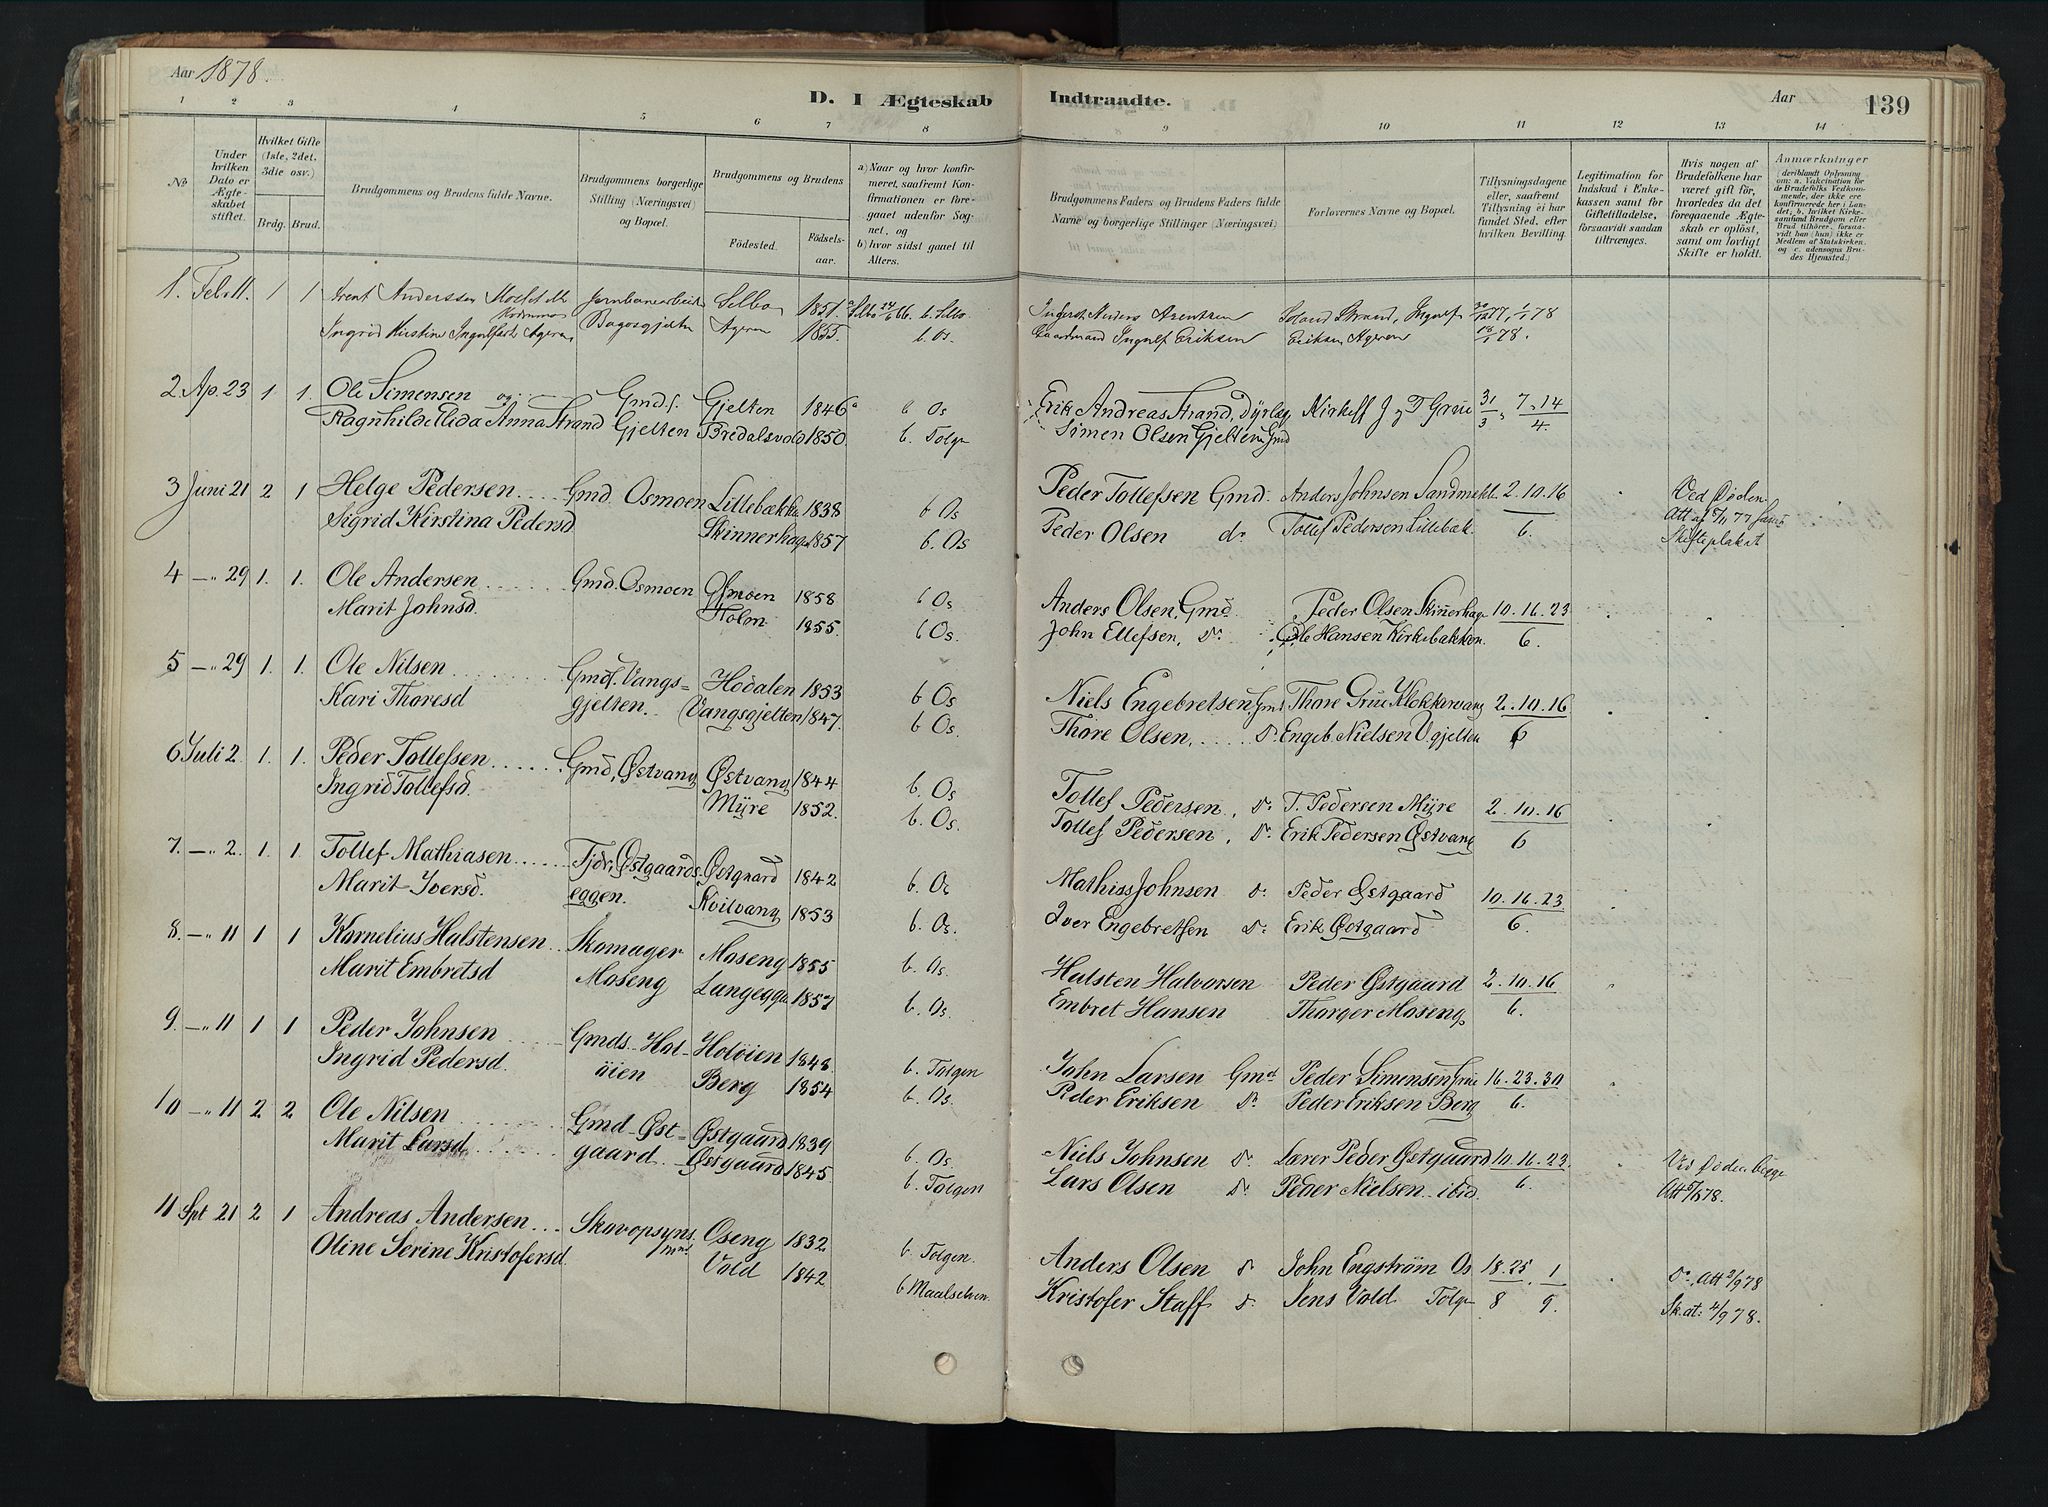 Aar 1878.
D. I Ægteskab Indtraadte.
Aar
139
1 2 3 4 5 6 7 8 9 10 11 12 13 14
No
Under hvilken Dato er Ægteskabet stiftet.
Hvilket Gifte (1ste, 2det, 3die osv.)
Brdg. Brud.
Brudgommens og Brudens fulde Navne.
Brudgommens borgerlige Stilling (Næringsvei) og Bopæl.
Brudgommens og Brudens
Födested.
Födselsaar.
a) Naar og hvor konfirmeret, saafremt Konfirmationen er foregaaet udenfor Sognet, og
b) hvor sidst gaaet til Alters.
Brudgommens Faders og Brudens Faders fulde Navne og borgerlige Stillinger (Næringsvei)
Forlovernes Navne og Bopæl.
Tillysningsdagene eller, saafremt Tillysning ei har fundet Sted, efter hvilken Bevilling.
Legitimation for Indskud i Enkekassen samt for Giftetilladelse, forsaavidt saadan tiltrænges.
Hvis nogen af Brudefolkene har været gift för, hvorledes da det foregaaende Ægteskab er oplöst, samt om lovligt Skifte er holdt.
Anmærkninger (deriblandt Oplysning om: a. Vakcination for de Brudefolks Vedkommende, der ikke ere konfirmerede her i Landet, b. hvilket Kirkesamfund Brudgom eller Brud tilhörer, forsaavidt han (hun) ikke er Medlem af Statskirken, og c. udensogns Brudes Hjemsted.)
1. Feb. 11. 1 1 Arent Anderssen Jernbanearbeid Selbo 1851. Selbo 66. b. Selbo Anders Arentsen Strand, Ingulf 77, 1/1 78
Ingrid Kirstine Ingulfsd. Ageren Ageren 1855. b. Os. Gaardmand Ingulf Eriksen Eriksen Ageren 78.
2. Ap. 23 1 1. Ole Simensen og Gmds. Gjelten 1846 b Os Erik Andreas Strand, Dyrlæg Kirkeff J. T Grue 31/3, 7, 14/4.
Ragnhild Anna Strand Gjelten Bredalsvold 1850. b. Tolge Simen Olsen Gjelten Gmd
3 Juni 21 2 1 Helge Pedersen Gmd. Osmoen Lillebækk 1838 b Os Peder Tollefsen Gmd. Anders Johnsen Sandmekl. 2. 10. 16 Ved Døden
Sigrid Kirstina Pedersd Skinnerhage 1857 b. Os Peder Olsen do Tollef Pedersen Lillebæk. 6. Att af 5/11 77
Skifteplakat
4 — " 29 1. 1. Ole Andersen Gmd. Osmoen Osmoen 1858 b Os Anders Olsen, Gmd. Peder Olsen Skinnerhage 10. 16. 23
Marit Johnsd. Holm 1855. b Os. John Ellefsen, Do Ole Hansen Kirkebakken. 6.
5 — " 29 1. 1. Ole Nilsen Gmds. Vangs= Hodalen 1853 b Os Niels Engebretsen Gmd Thore Grue Klokkervang 2. 10. 16
Kari Thoresd gjelten. Vangsgjelten 1847. b Os. Thore Olsen, Do. Engeb. Nielsen Vgjelten 6
6 Juli 2 1. 1. Peder Tollefsen Gmd, Østvang Østvang 1844 b. Os Tollef Pedersen, Do T. Pedersen Myre 2. 10. 16
Ingrid Tollefsd. Myre 1852. b. Os. Tollef Pedersen, Do. Erik Pedersen Østvang 6
7. — " 2. 1. 1. Tollef Mathiasen Fjdr. Østgaards Østgaard 1842 b. Os Mathiss Johnsen Do Peder Østgaard 10. 16. 23
Marit Iversd. eggen. Kvilvang 1853 b. Os. Iver Engebretsen Do Erik Østgaard 6.
8. — " 11 1 1 Kornelius Halstensen Skomager Moseng 1855 b. Os Halsten Halvorsen Peder Østgaard 2. 10. 16
Marit Embretsd Moseng Langeggen 1857 b. Os. Embret Hansen Thorger Moseng 6.
9. — " 11 1 1 Peder Johnsen Gmds. Hol- Holøien 1848 b. Tolgen John Larsen Gmd Peder Simensen Grue 16. 23. 30
Ingrid Pedersd. øien Berg 1854 b. Os. Peder Eriksen Do Peder Eriksen Berg 6.
10 — " 11 2 2 Ole Nilsen Gmd- Øst- Østgaard 1839 b. Os Niels Johnsen Do Lærer Peder Østgaard 10. 16. 23.
Marit Larsd. gaard Østgaard 1845 b. Tolgen Lars Olsen Do Peder Nielsen ibid. 6. Att 78.
11 Spt 21 2 1 Andreas Andersen Skovopsyns Oseng 1832 b. Tolgen. Anders Olsen do John Engstrøm Os 18. 25/8. 1/9. Do. Att 3/9 78
Oline Serine Kristofersd. Vold 1842 b Maalselven Kristofer Staff do. Jens Vold Tolge Sk.at: 4/9 78.